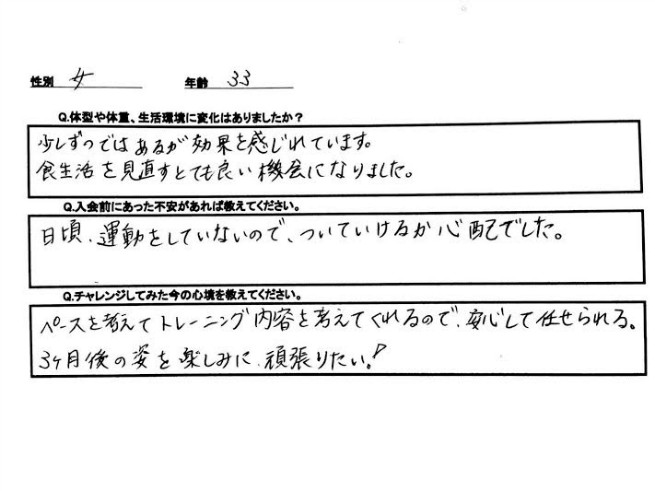 性別 女 年齢 33
Q.体型や体重、生活環境に変化はありましたか？
少しずつではあるが効果を感じれています。
食生活を見直すとても良い機会になりました。
Q.入会前にあった不安があれば教えてください。
日頃、運動をしていないので、ついていけるか心配でした。
Q.チャレンジしてみた今の心境を教えてください。
ペースを考えてトレーニング内容を考えてくれるので、安心して任せられる。
3ヶ月後の姿を楽しみに、頑張りたい！